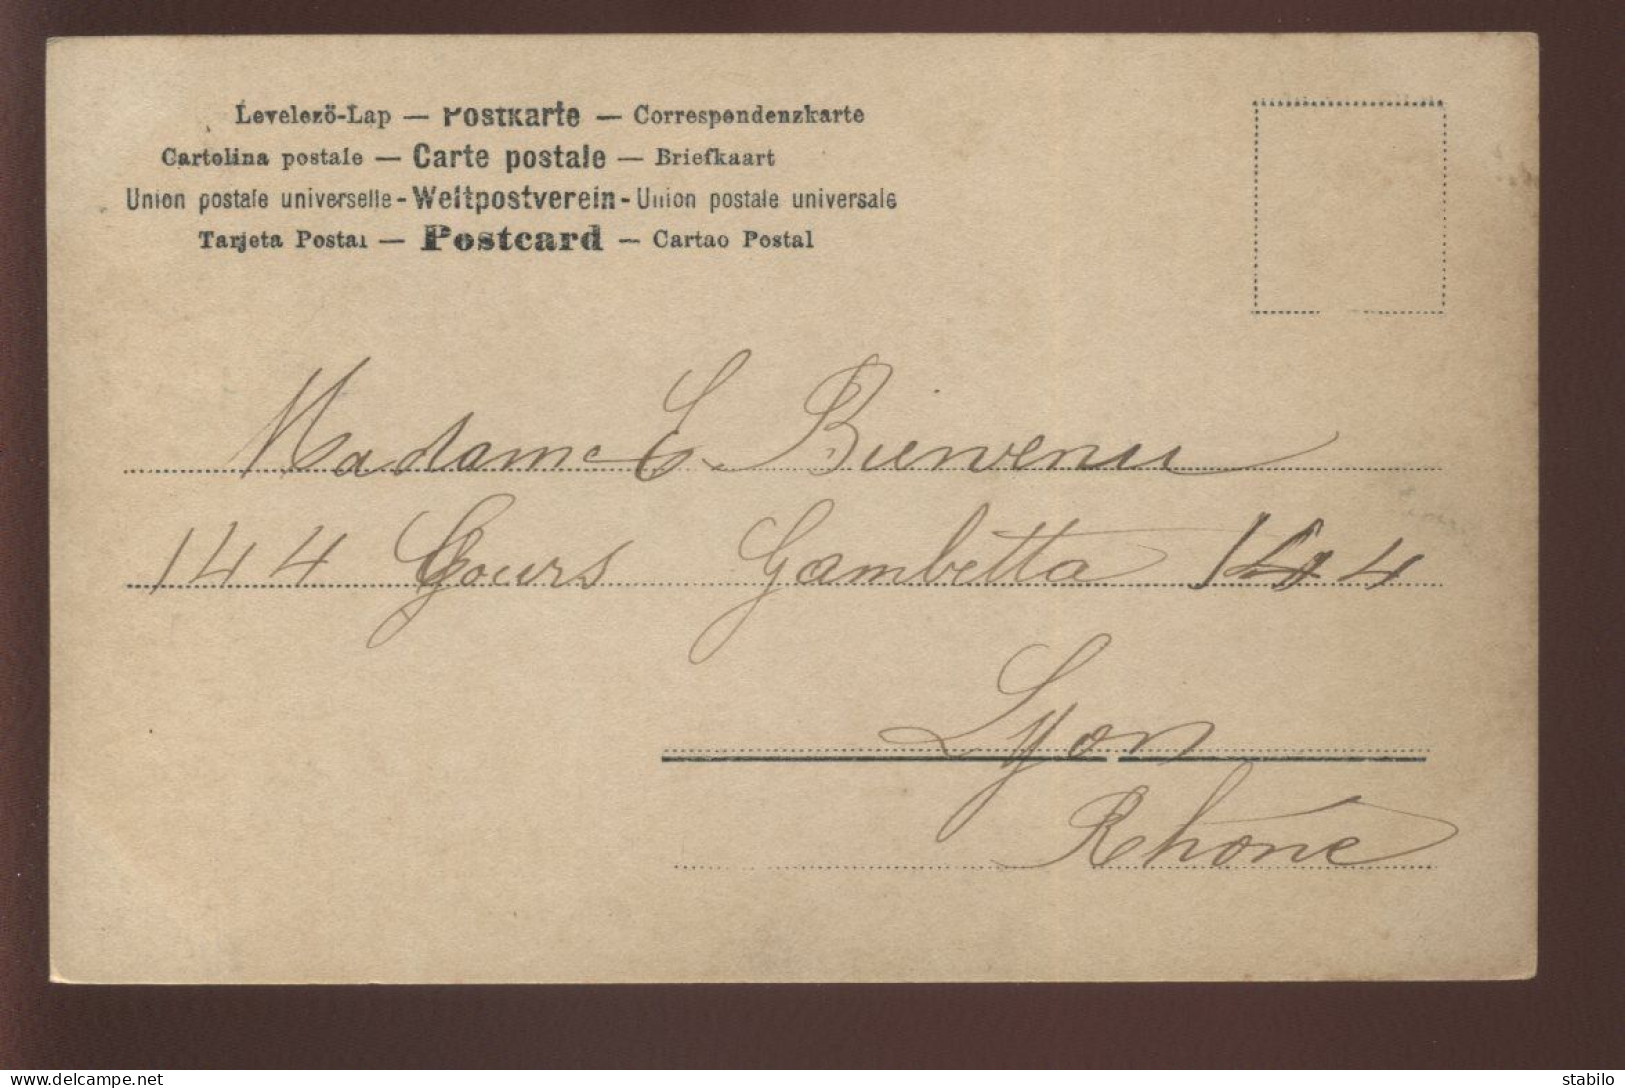 Levelező-Lap — Postkarte — Correspondenzkarte
Cartolina postale — Carte postale — Briefkaart
Union postale universelle - Weltpostverein - Union postale universale
Tarjeta Postal — Postcard — Cartao Postal
Madame E. Bienvenu
144 Cours Gambetta 144
Lyon
Rhône
delcampe.net
stabilo